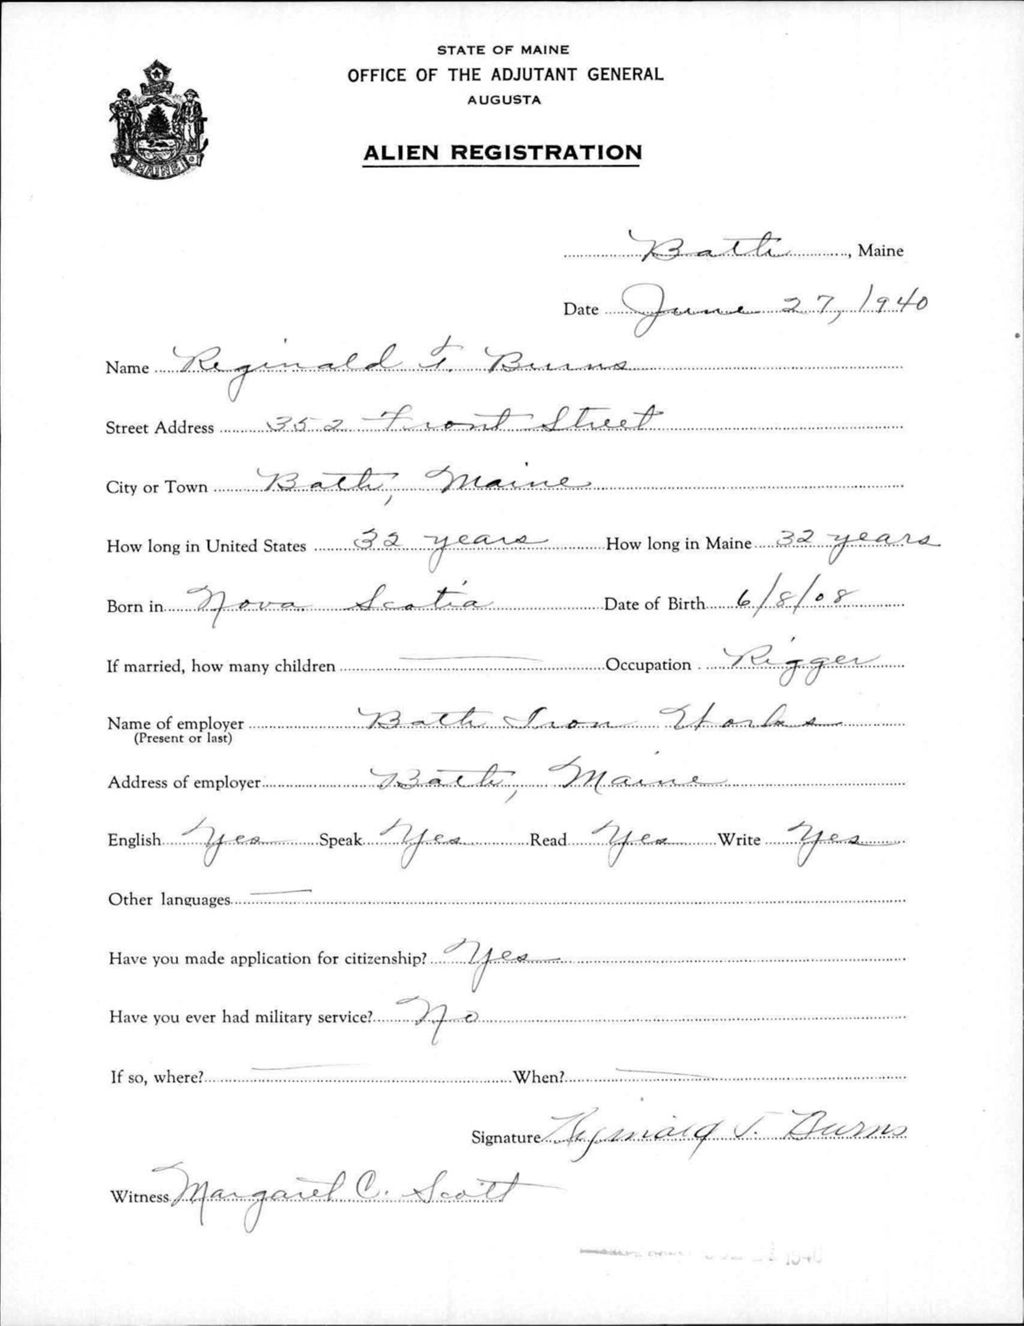 STATE OF MAINE
OFFICE OF THE ADJUTANT GENERAL
AUGUSTA
ALIEN REGISTRATION
MAINE
Bath, Maine
Date June 27, 1940
Name Reginald T. Burns
Street Address 352 Front Street
City or Town Bath, Maine
How long in United States 32 years How long in Maine 32 years
Born in Nova Scotia Date of Birth 6/8/08
If married, how many children — Occupation Rigger
Name of employer Bath Iron Works
(Present or last)
Address of employer Bath, Maine
English Yes Speak Yes Read Yes Write Yes
Other languages —
Have you made application for citizenship? Yes
Have you ever had military service? No
If so, where? — When? —
Signature Reginald T. Burns
Witness Margaret C. Scott